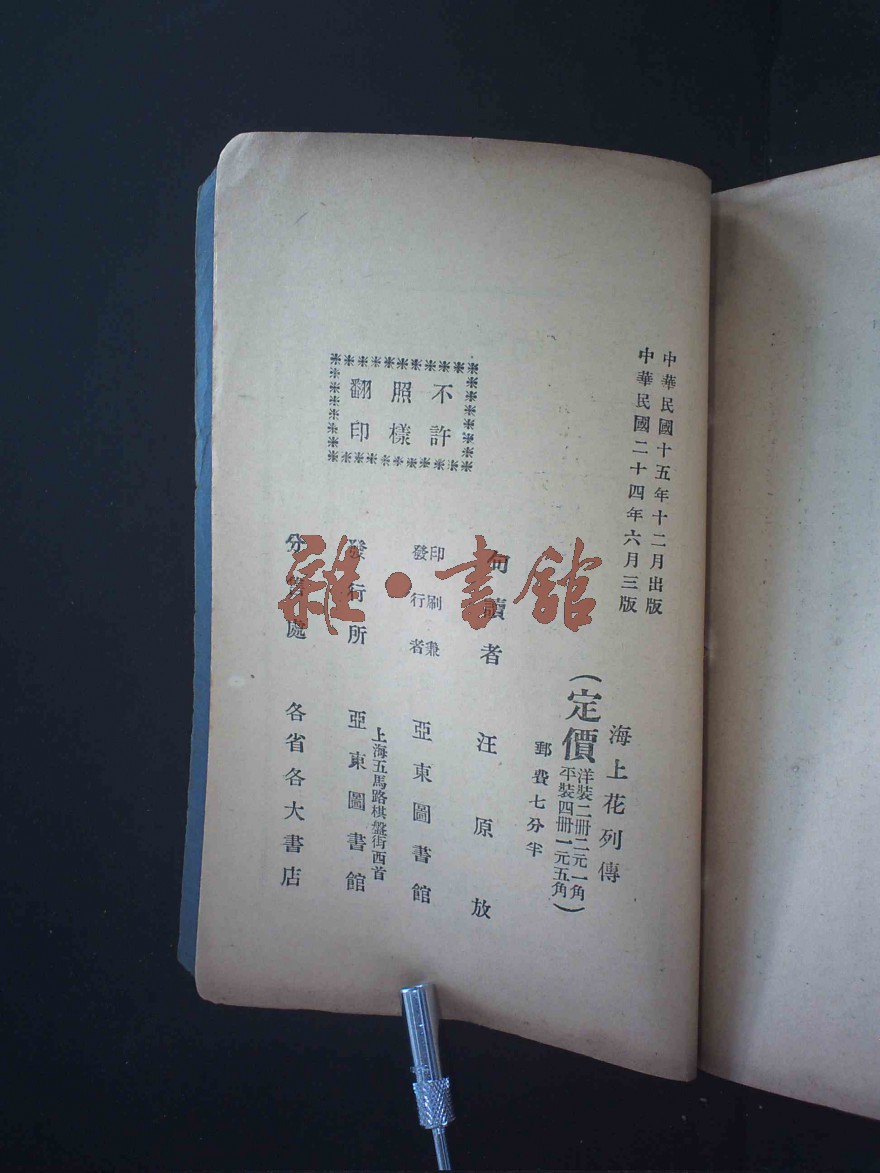 中華民國十五年十二月出版
中華民國二十四年六月三版
海上花列傳
（定價
洋裝二册二元一角
平裝四册一元五角）
郵費七分半
句讀者 汪原放
印刷兼
發行者 亞東圖書館
上海五馬路棋盤街西首
發行所 亞東圖書館
分售處 各省各大書店
不許
照樣
翻印
雜·書館